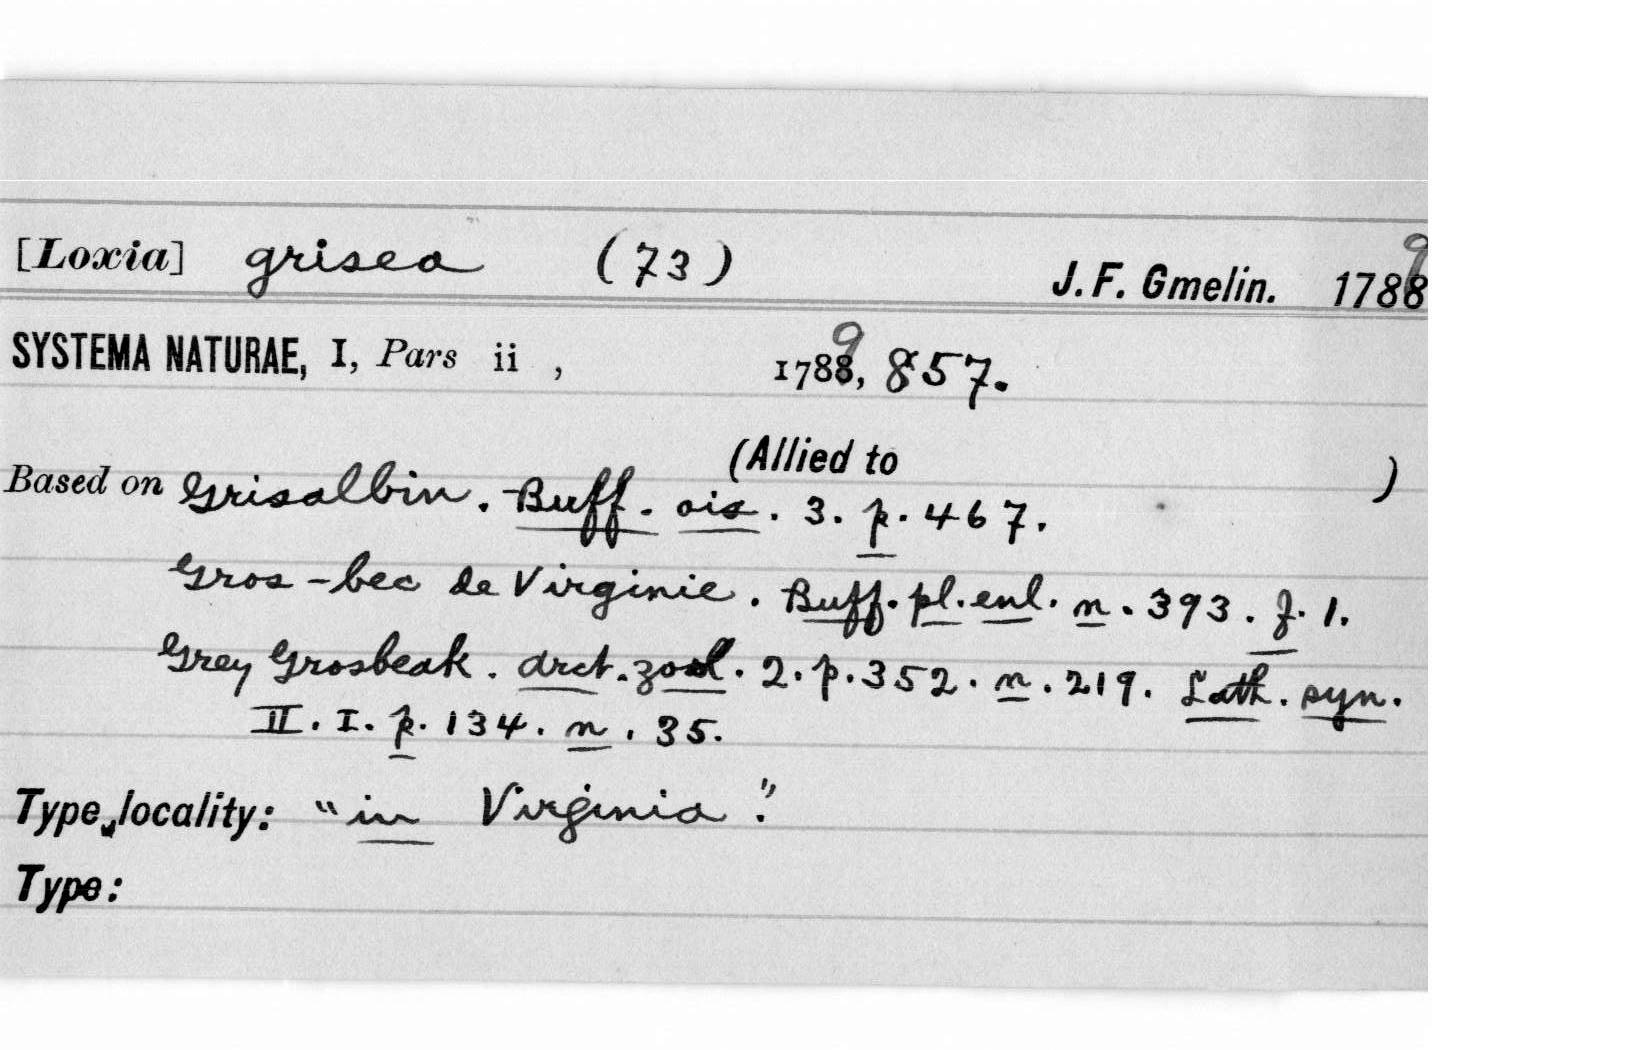 [Loxia] grisea (73) J. F. Gmelin. 1788 9
SYSTEMA NATURAE, I, Pars ii , 1788 9, 857.
(Allied to )
Based on Grisalbin. Buff. ois. 3. p. 467.
Gros-bec de Virginie. Buff. pl. enl. n. 393. f. 1.
Grey Grosbeak. arct. zool. 2. p. 352. n. 219. Lath. syn.
II. I. p. 134. n. 35.
Type locality: "in Virginia."
Type: